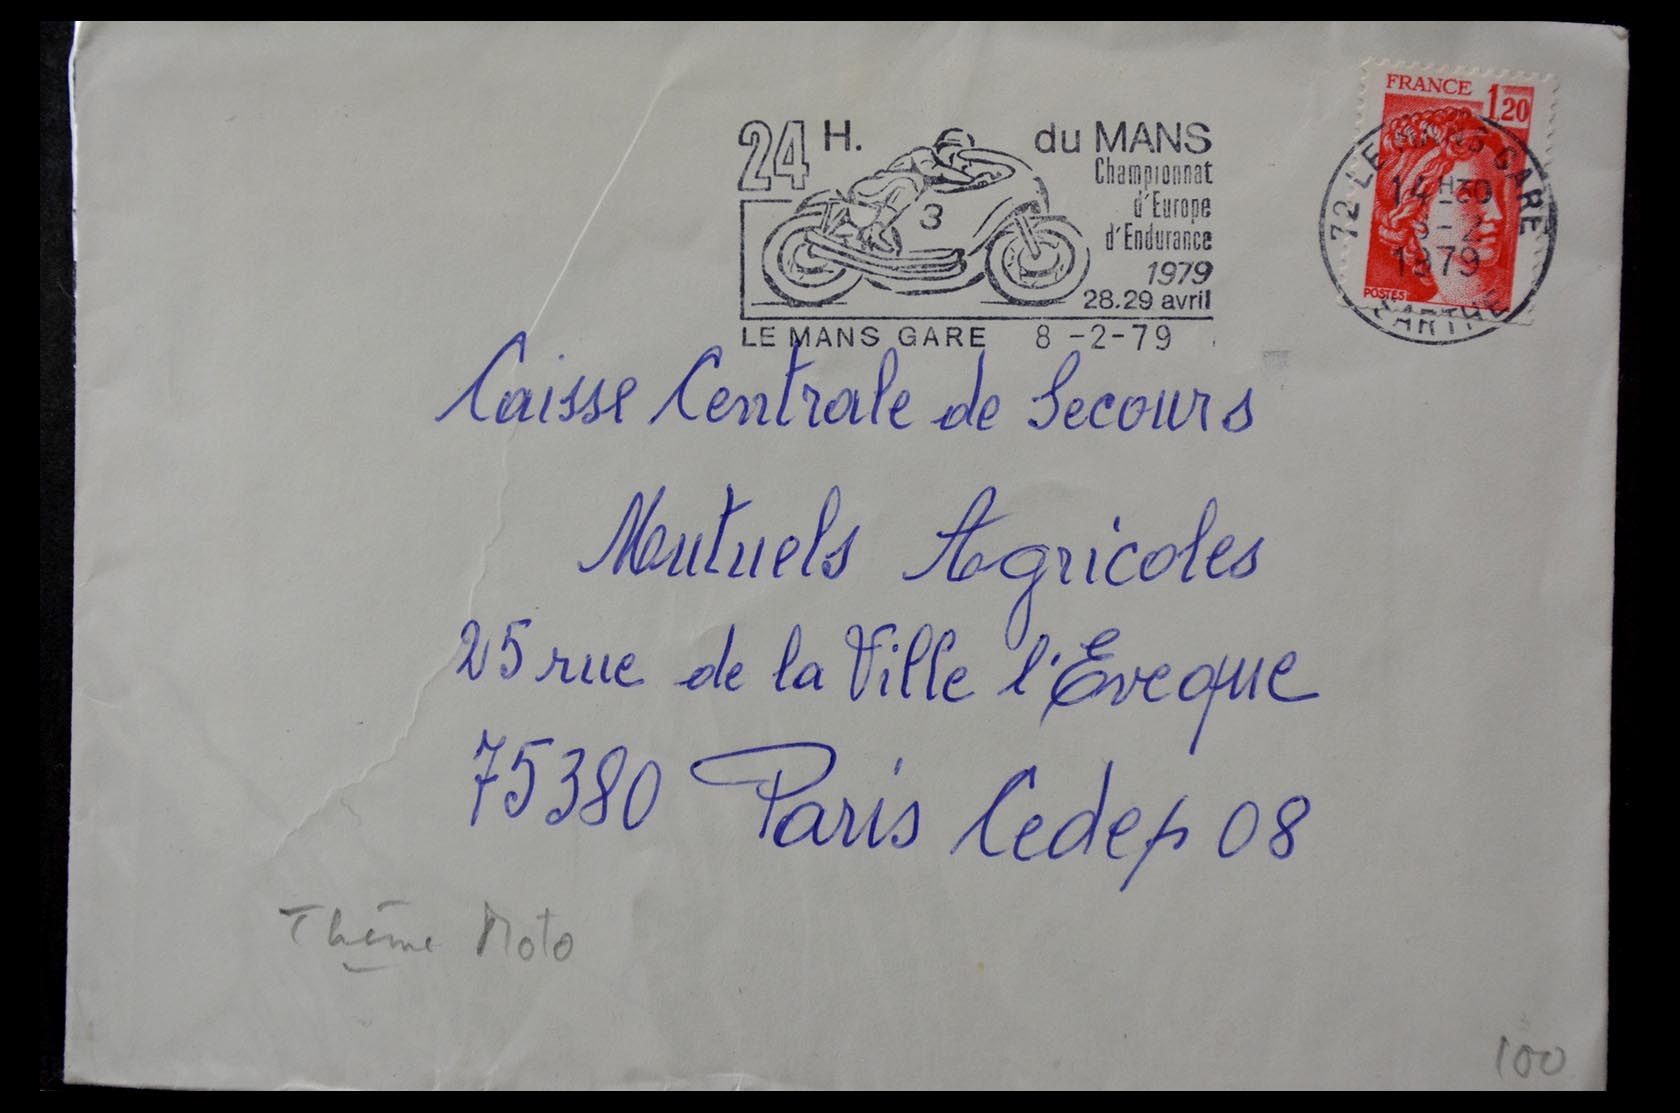 FRANCE 1,20
24 H. du MANS
Championnat
d'Europe
d'Endurance
1979
28.29 avril
3
LE MANS GARE 8-2-79
72 LE MANS GARE
14H30
8-2
1979
SARTHE
POSTES
Caisse Centrale de Secours
Mutuels Agricoles
25 rue de la Ville l'Eveque
75380 Paris Cedex 08
Thème Moto
100